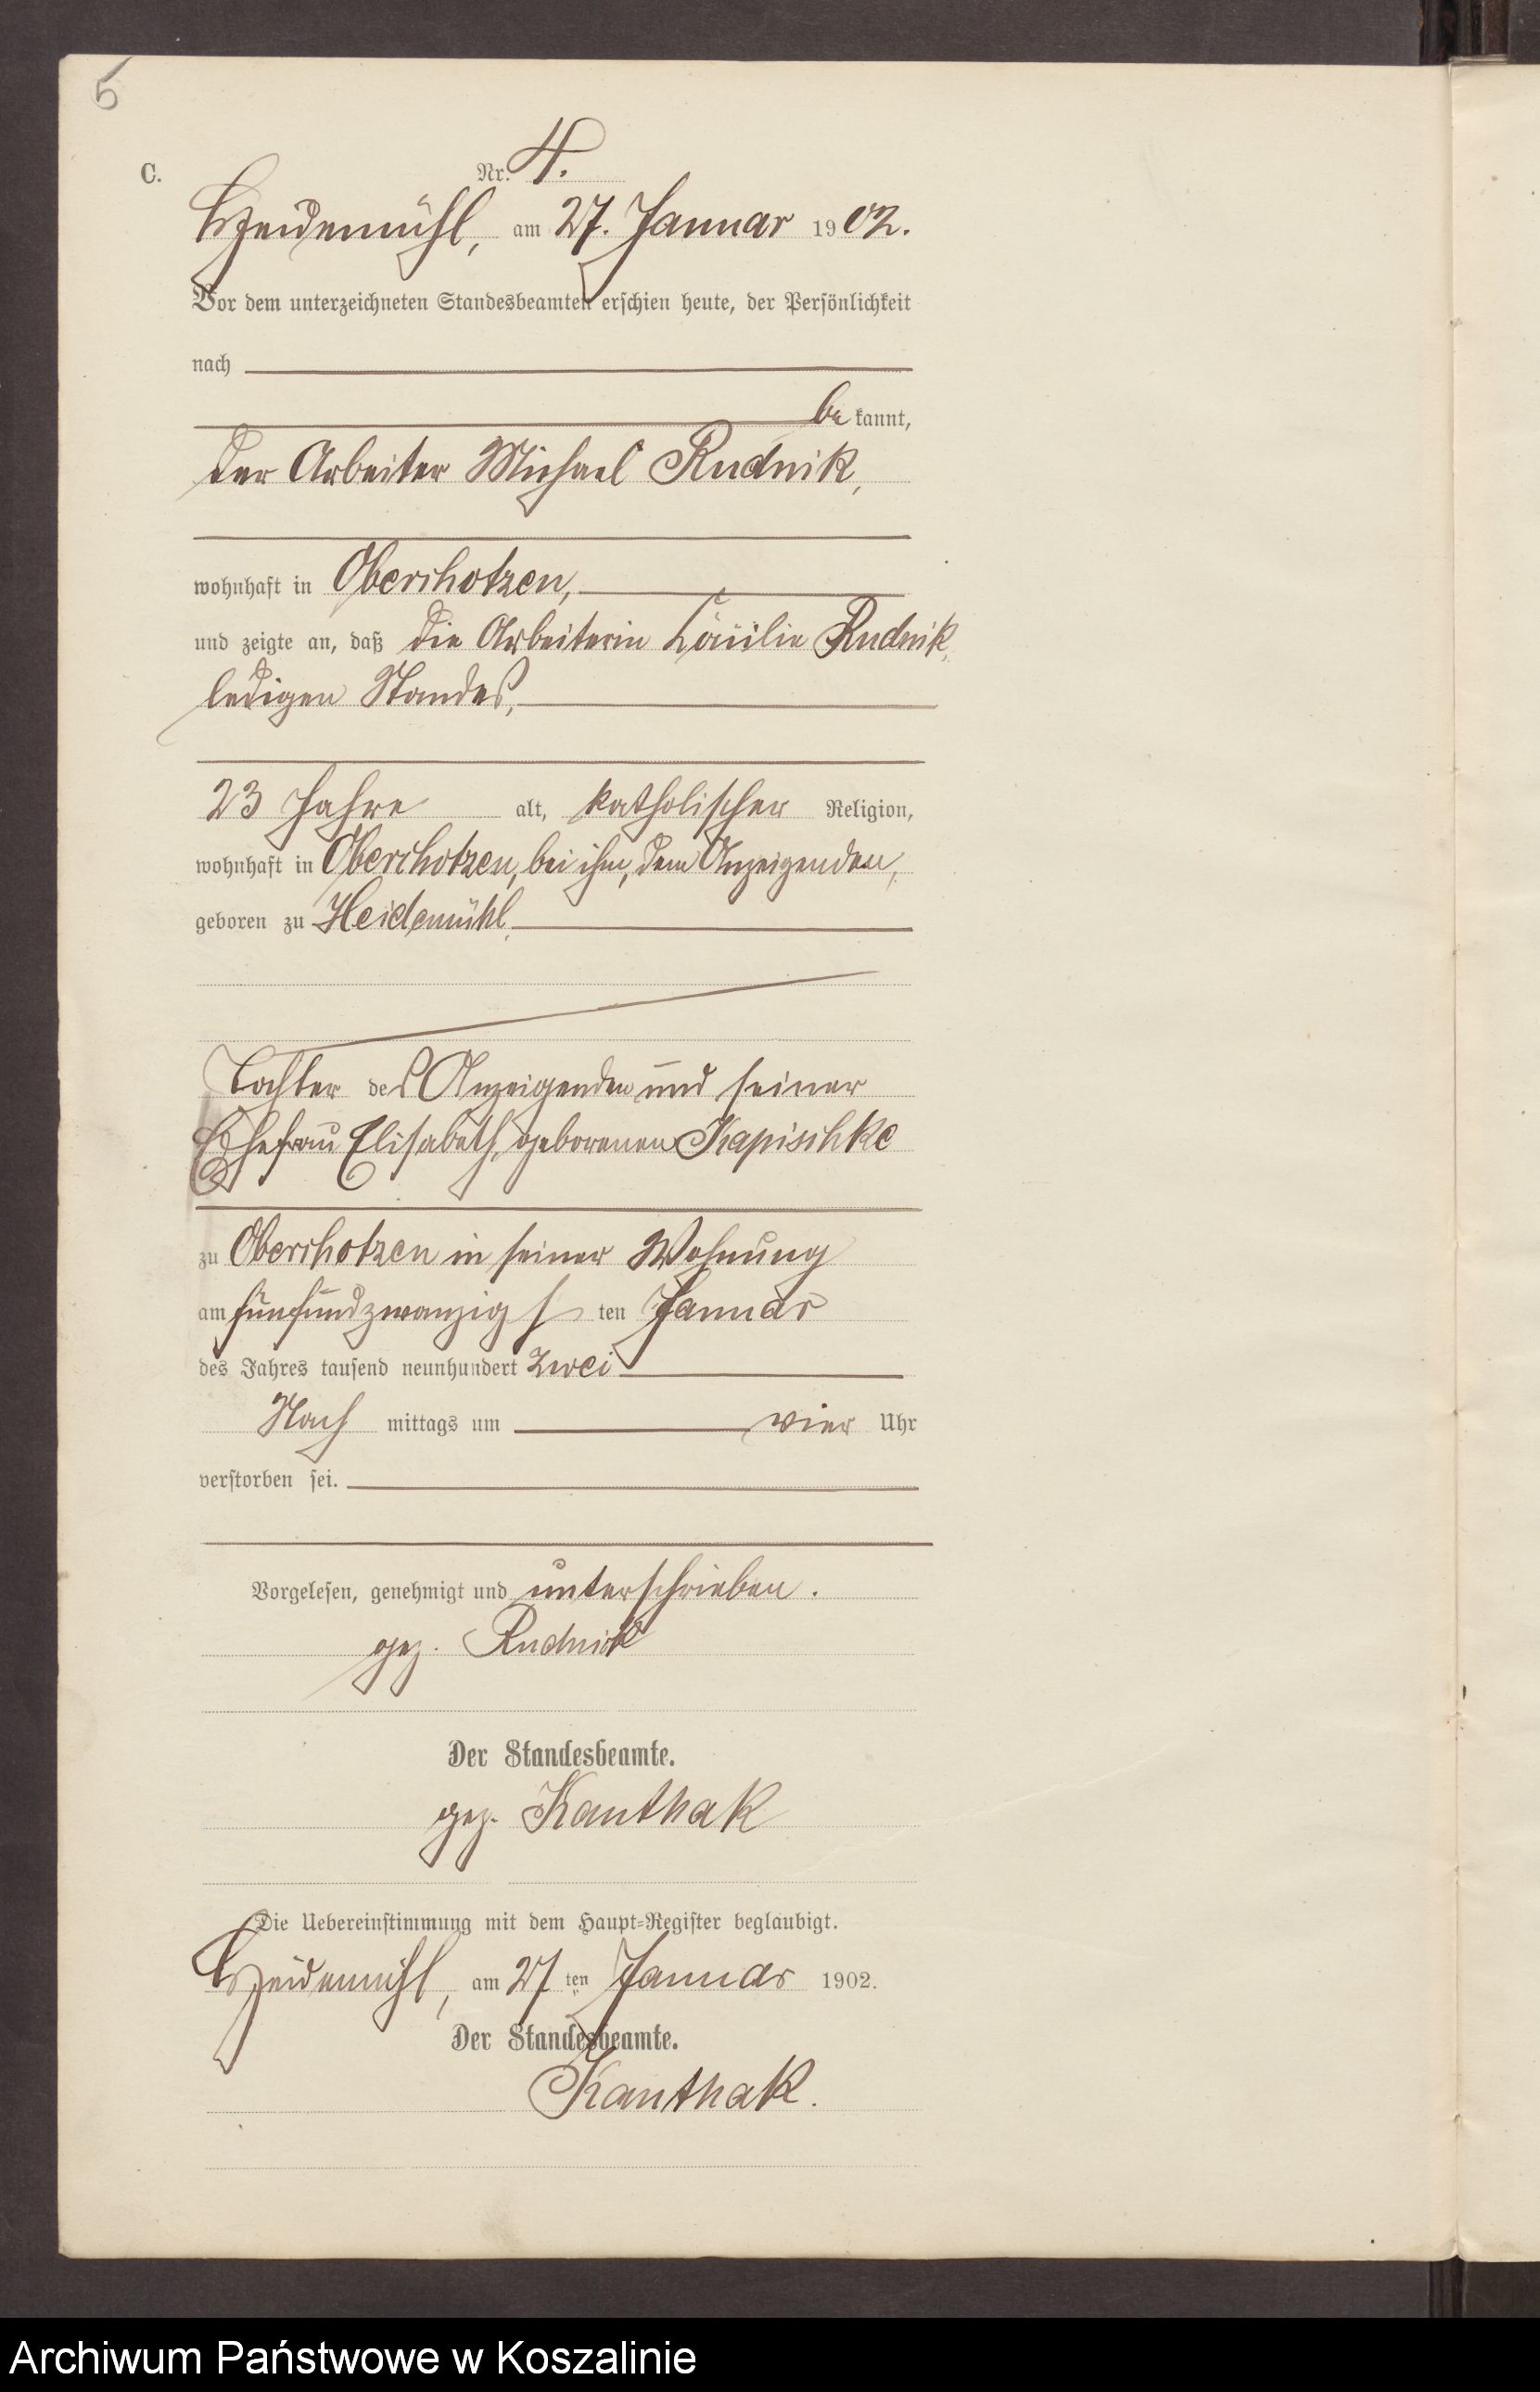 5
C. Nr. 4.
Heidemühl, am 27. Januar 1902.
Vor dem unterzeichneten Standesbeamten erschien heute, der Persönlichkeit
nach
be kannt,
der Arbeiter Michael Rudnik,
wohnhaft in Oberchotzen,
und zeigte an, daß die Arbeiterin Rudnik,
ledigen Standes,
23 Jahre alt, katholischer Religion,
wohnhaft in Oberchotzen, bei ihm, dem Anzeigenden,
geboren zu Heidemühl,
Tochter des Anzeigenden und seiner
Ehefrau Elisabeth, geborenen Kapischke
zu Oberchotzen in seiner Wohnung
am fünfundzwanzigs ten Januar
des Jahres tausend neunhundert zwei
Nach mittags um vier Uhr
verstorben sei.
Vorgelesen, genehmigt und unterschrieben.
gez. Rudnik
Der Standesbeamte.
gez. Kanthak
Die Uebereinstimmung mit dem Haupt-Register beglaubigt.
Heidemühl, am 27 ten Januar 1902.
Der Standesbeamte.
Kanthak.
Archiwum Państwowe w Koszalinie